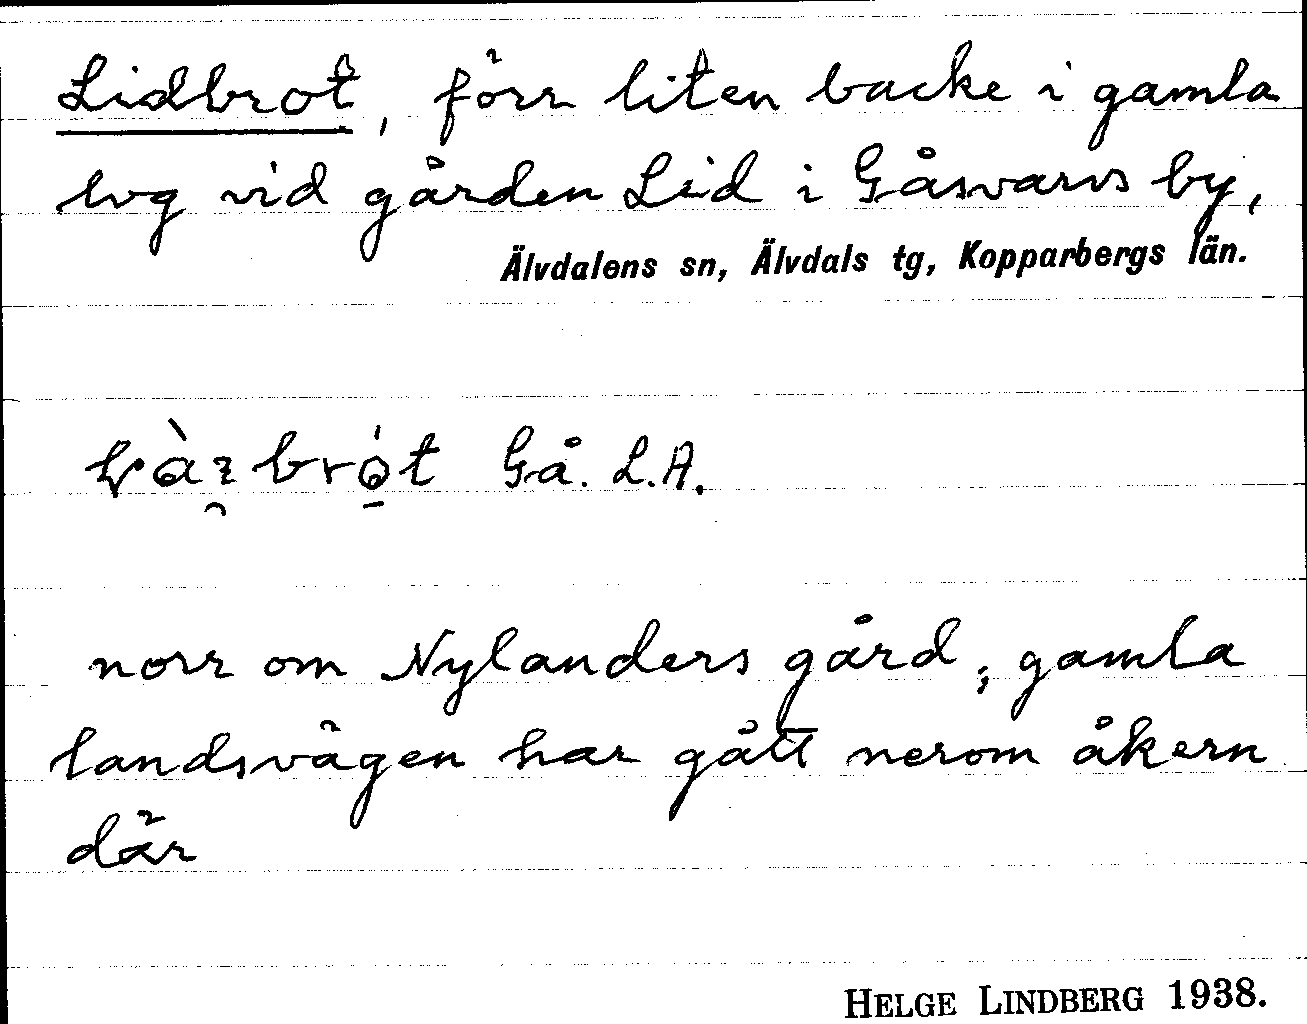 Lidbrot, förr liten backe i gamla
lvg vid gården Lid i Gåsvarvs by,
Älvdalens sn, Älvdals tg, Kopparbergs län.
Gå. L.A.
norr om Nylanders gård; gamla
landsvägen har gått nerom åkern
där
HELGE LINDBERG 1938.